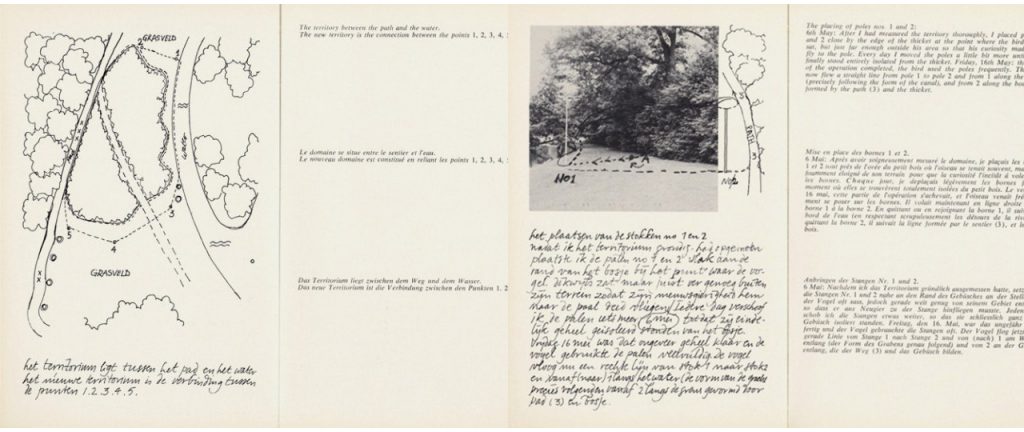 GRASVELD
water
5
4
3
GRASVELD
het territorium ligt tussen het pad en het water
het nieuwe territorium is de verbinding tussen
de punten 1.2.3.4.5.
The territory between the path and the water.
The new territory is the connection between the points 1, 2, 3, 4,
Le domaine se situe entre le sentier et l'eau.
Le nouveau domaine est constitué en reliant les points 1, 2, 3, 4,
Das Territorium liegt zwischen dem Weg und dem Wasser.
Das neue Territorium ist die Verbindung zwischen den Punkten 1. 2
NO1
NO2
PATH
het plaatsen van de stokken no 1 en 2
nadat ik het territorium grondig had opgemeten
plaatste ik de palen no 1 en 2 vlak aan de
rand van het bosje bij het punt waar de vo-
gel dikwijls zat maar juist ver genoeg buiten
zijn terrein zodat zijn nieuwsgierigheid hem
naar de paal deed vliegen. Iedere dag verschoof
ik de palen iets meer tot dat zij einde-
lijk geheel geïsoleerd stonden van het bosje.
Vrijdag 16 mei was dat ongeveer geheel klaar en de
vogel gebruikte de palen veelvuldig. de vogel
vloog nu een rechte lijn van stok 1 naar stok 2
en vanaf (naar) 1 langs het water (de vorm van de
precies volgend) en vanaf 2 langs de grens gevormd door
pad (3) en bosje.
The placing of poles nos. 1 and 2:
6th May: After I had measured the territory thoroughly, I placed
and 2 close by the edge of the thicket at the point where the bird
sat, but just far enough outside his area so that his curiosity mad
fly to the pole. Every day I moved the poles a little bit more unti
finally stood entirely isolated from the thicket. Friday, 16th May: th
of the operation completed, the bird used the poles frequently. Th
now flew a straight line from pole 1 to pole 2 and from 1 along the
(precisely following the form of the canal), and from 2 along the bou
formed by the path (3) and the thicket.
Mise en place des bornes 1 et 2.
6 Mai: Après avoir soigneusement mesuré le domaine, je plaçais les
1 et 2 tout près de l'orée du petit bois où l'oiseau se tenait souvent, ma
fisamment éloigné de son terrain pour que la curiosité l'incitât à vole
les bornes. Chaque jour, je deplaçais légèrement les bornes
moment où elles se trouvèrent totalement isolées du petit bois. Le ve
16 mai, cette partie de l'opération s'achevait, et l'oiseau venait fré
ment se poser sur les bornes. Il volait maintenant en ligne droite
borne 1 à la borne 2. En quittant ou en rejoignant la borne 1, il sui
bord de l'eau (en respectant scrupuleusement les détours de la rive
quittant la borne 2, il suivait la ligne formée par le sentier (3), et le
bois.
Anbringen der Stangen Nr. 1 und 2.
6 Mai: Nachdem ich das Territorium gründlich ausgemessen hatte, setz
die Stangen Nr. 1 und 2 nahe an den Rand des Gebüsches an der Stell
der Vogel oft sass, jedoch gerade weit genug von seinem Gebiet ent
so dass er aus Neugier zu der Stange hinfliegen musste. Jeden
schob ich die Stangen etwas weiter, so das sie schliesslich ganz
Gebüsch isoliert standen. Freitag, den 16. Mai, war das ungefähr
fertig und der Vogel gebrauchte die Stangen oft. Der Vogel flog jetz
gerade Linie von Stange 1 nach Stange 2 und von (nach) 1 am W
entlang (der Form des Grabens genau folgend) und von 2 an der G
entlang, die der Weg (3) und das Gebüsch bilden.